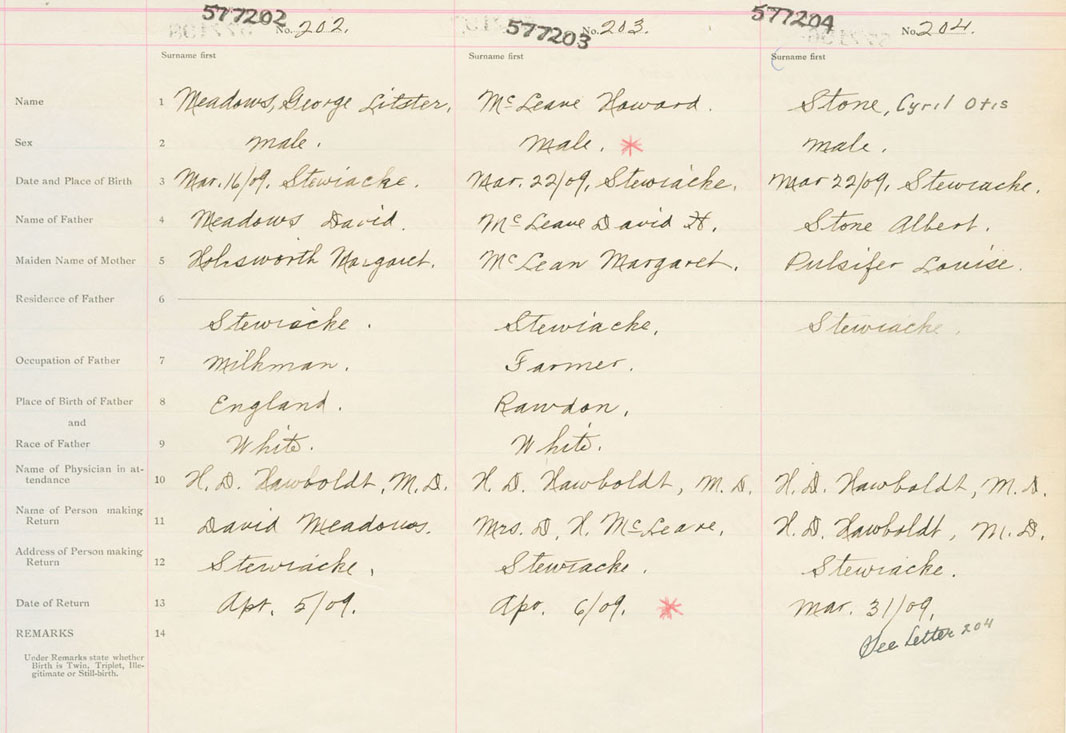 577202 No. 202. 577203 No. 203. 577204 No. 204.
Surname first Surname first Surname first
Name 1 Meadows, George Litster. McLeave Howard. Stone, Cyril Otis
Sex 2 male. Male. male.
Date and Place of Birth 3 Mar. 16/09, Stewiacke. Mar. 22/09, Stewiacke. Mar 22/09, Stewiacke.
Name of Father 4 Meadows David. McLeave David H. Stone Albert.
Maiden Name of Mother 5 Holesworth Margaret. McLean Margaret. Pulsifer Louise.
Residence of Father 6
Stewiacke. Stewiacke. Stewiacke.
Occupation of Father 7 Milkman. Farmer.
Place of Birth of Father 8 England. Rawdon.
and
Race of Father 9 White. White.
Name of Physician in at-
tendance 10 H. D. Hawboldt, M.D. H. D. Hawboldt, M.D. H. D. Hawboldt, M.D.
Name of Person making
Return 11 David Meadows. Mrs. D. H. McLeave, H. D. Hawboldt, M.D.
Address of Person making
Return 12 Stewiacke, Stewiacke. Stewiacke.
Date of Return 13 Apr. 5/09. Apr. 6/09. Mar. 31/09,
REMARKS 14 See Letter 204
Under Remarks state whether
Birth is Twin, Triplet, Ille-
gitimate or Still-birth.